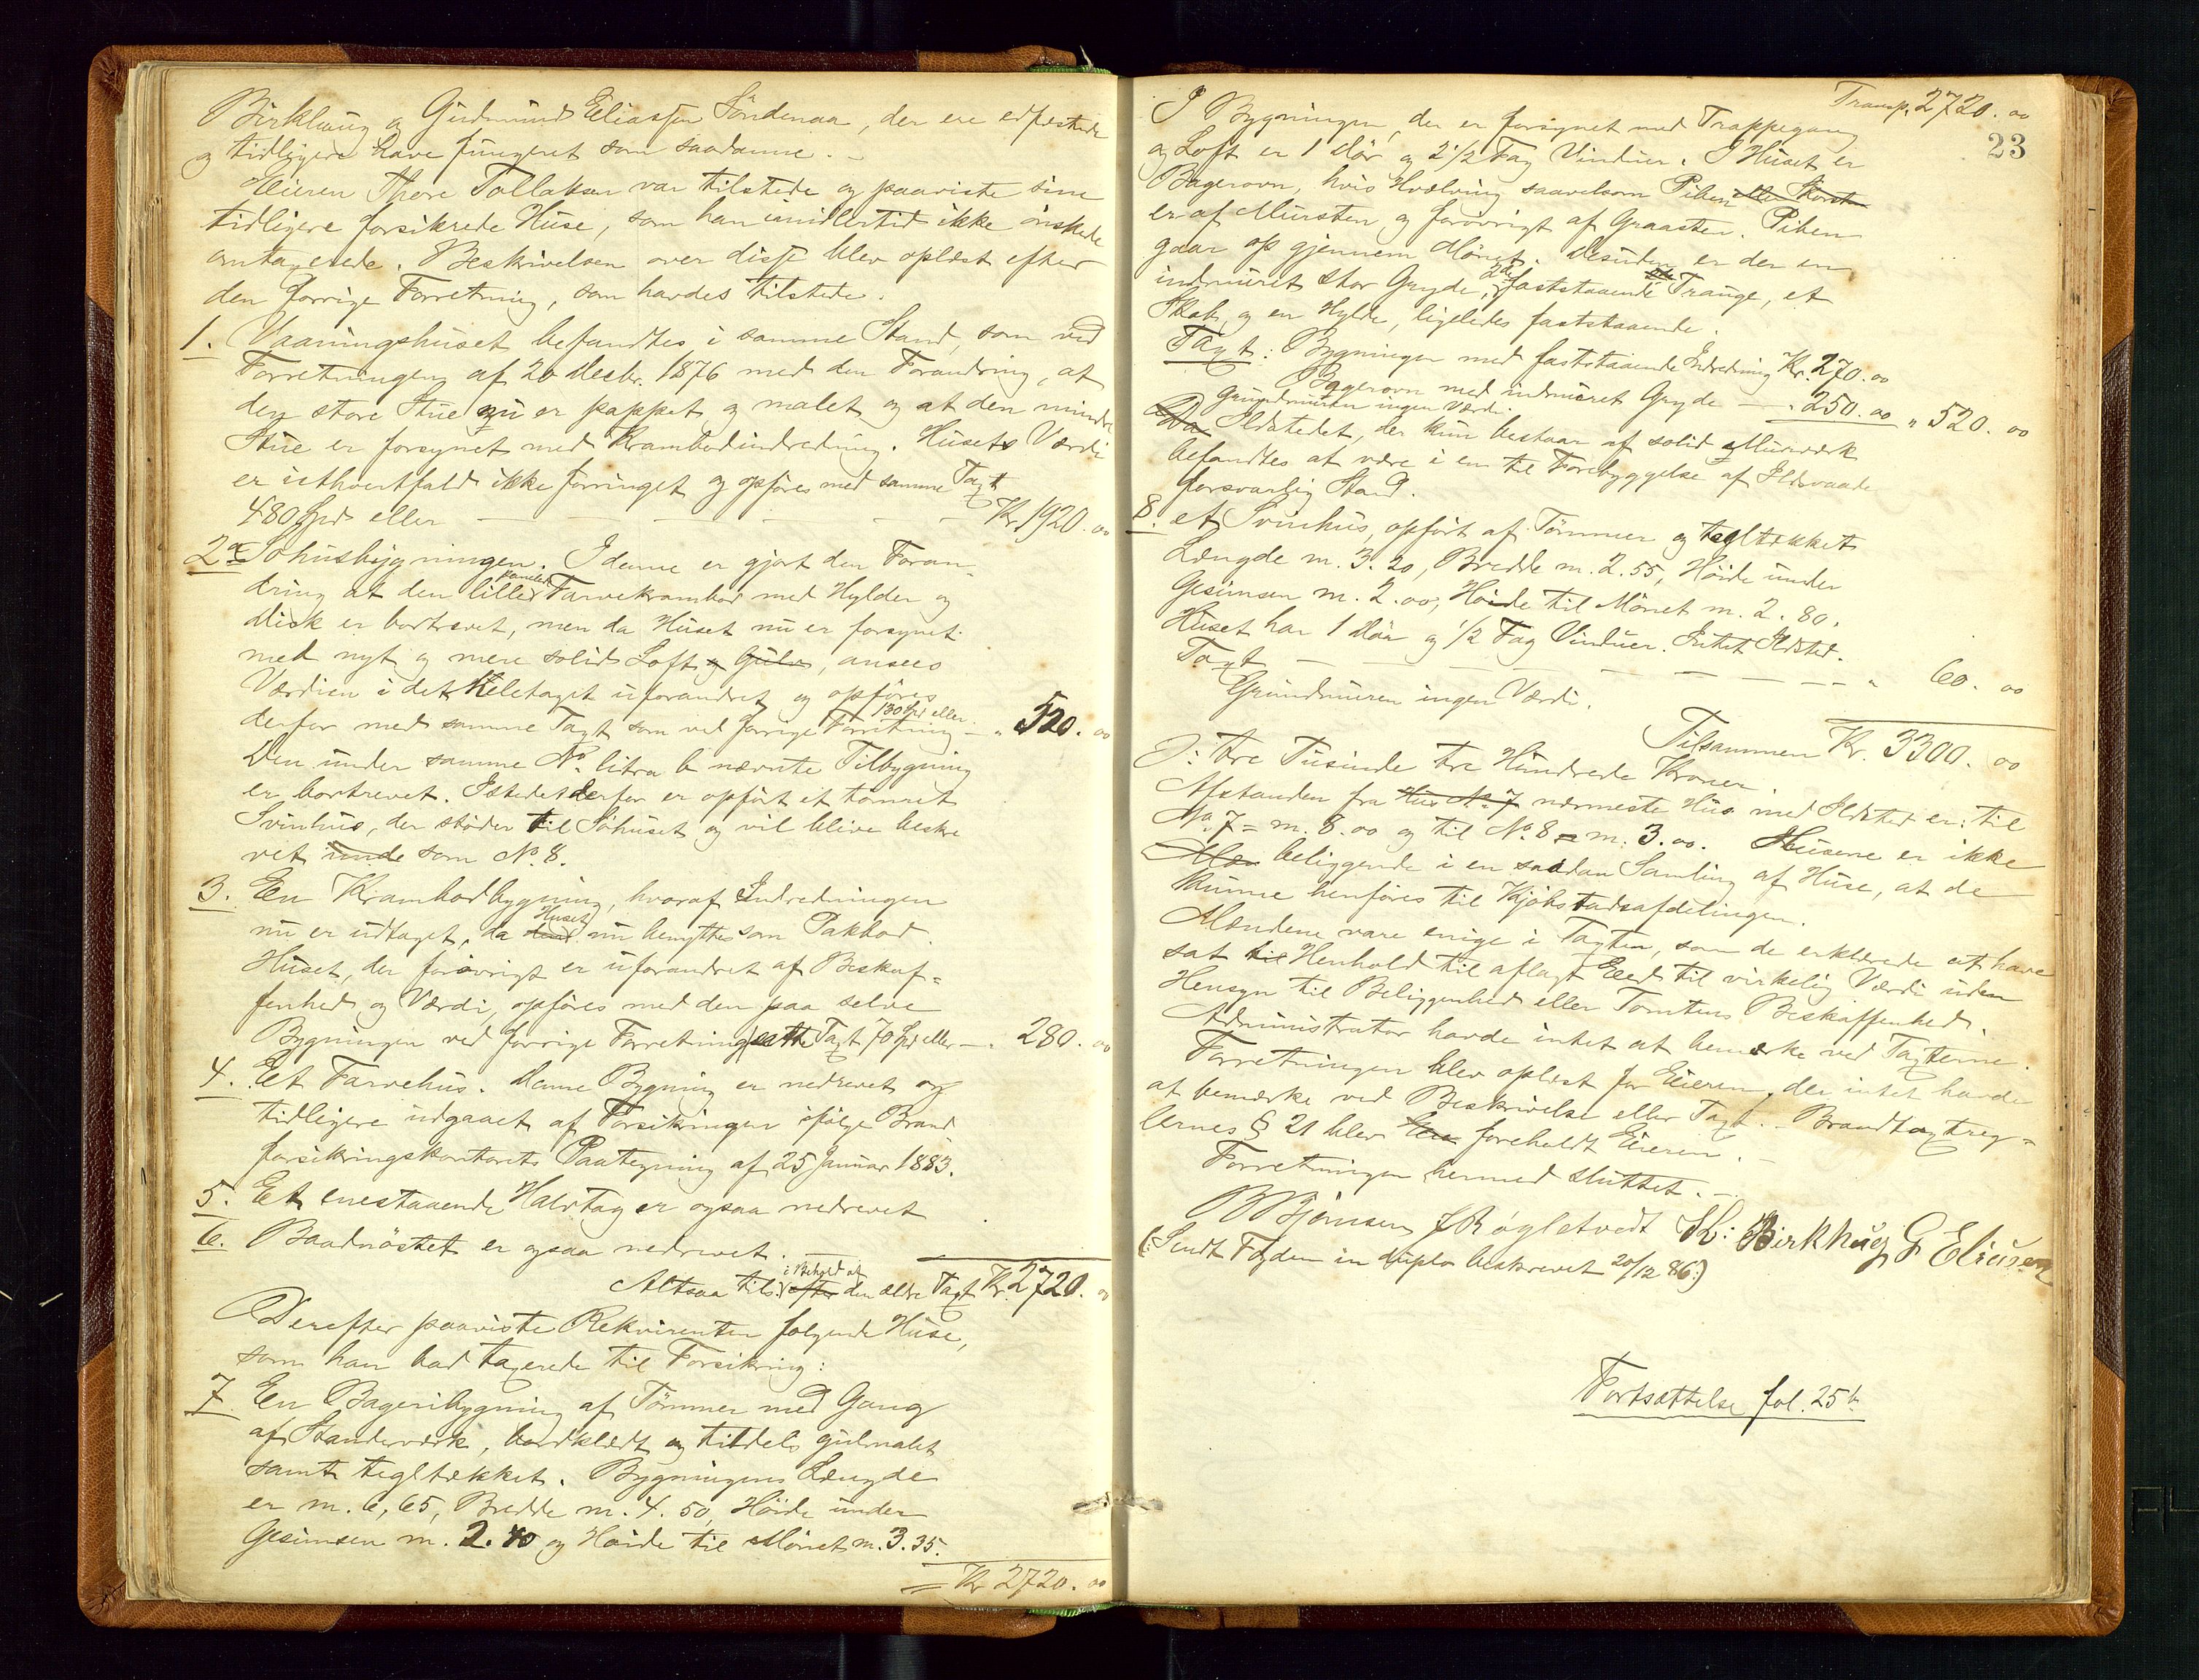 Birkhaug og Gudmund Eliassen Söndenaa, der ere edfæstede
og tidligere have fungeret som saadanne. –
Eieren Thore Tollaksen var tilstede og paaviste sine
tidligere forsikrede Huse, som han imidlertid ikke önskede
omtaxerede. Beskrivelsen over disse blev oplæst efter
den forrige Forretning, som havdes tilstede.
1. Vaaningshuset befandtes i samme Stand, som ved
Forretningen af 20 Decbr. 1876 med den Forandring, at
den store Stue nu er pappet og malet og at den mindre
Stue er forsynet med Krambodindredning. Husets Værdi
er ithvertfald ikke forringet og opföres med samme Taxt
480 Spd eller — — — — — Kr. 1920.00
2a Söhusbygningen. I denne er gjort den Foran-
dring at den lille panelede Farvekrambod med Hylder og
Disk er bortrevet, men da Huset nu er forsynet
med nyt og mere solid Loft og Gulv, ansees
Værdien i det Heletaget uforandret og opföres
derfor med samme Taxt som ved forrige Forretning 130 Spd eller – „ 520.00
Den under samme No. litra b nævnte Tilbygning
er bortrevet. Istedetderfor er opfört et tömret
Svinhus, der stöder til Söhuset og vil blive beskre
vet unde som No. 8.
3. En Krambodbygning, hvoraf Indredningen
nu er udtaget, da den Huset nu benyttes som Pakbod.
Huset, der forövrigt er uforandret af Beskaf-
fenhed og Værdi, opföres med den paa selve
Bygningen ved forrige Forretning satte Taxt 70 Spd eller – „ 280.00
4. Et Farvehus. Denne Bygning er nedrevet og
tidligere udgaaet af Forsikringen ifölge Brand
forsikringskontorets Paategning af 25 Januar 1883.
5. Et enestaaende Halvtag er ogsaa nedrevet
6. Baadnöstet er ogsaa nedrevet. —
Altsaa tils. efter i Behold af den ældre Taxt Kr. 2720.00
Derefter paaviste Rekvirenten fölgende Huse,
som han bad taxerede til Forsikring:
7. En Bageribygning af Tömmer med Gang
af Standerværk, bordklædt og tildels gulmalet
samt tegltækket. Bygningens Længde
er m. 6.65, Bredde m. 4.50, Höide under
Gesimsen m. 2.40 og Höide til Mönet m. 3.35.
= Kr 2720.00
Transp. 2720.00
23
I Bygningen, der er forsynet med Trappegang
og Loft er 1 Dör og 2 1/2 Fag Vinduer. I Huset er
Bagerovn, hvis Hvælving saavelsom Piben eller Skorsten
er af Mursten og forövrigt af Graasten. Piben
gaar op gjennem Mönet. Desuden er der en
indmuret stor Gryde, 2de faststaaende Trauge, et
Skab og en Hylde, ligeledes faststaaende.
Taxt: Bygningen med faststaaende Indredning Kr. 270.00
Bagerovn med indmuret Gryde — „ 250.00 „ 520.00
Grundmuren ingen Værdi.
Da Ildstedet, der kun bestaar af solid Murværk
befandtes at være i en til Forebyggelse af Ildsvaade
forsvarlig Stand.
8. et Svinhus, opfört af Tömmer og tegltækket
Længde m. 3.20, Bredde m. 2.55, Höide under
Gesimsen m. 2.00, Höide til Mönet m. 2.80.
Huset har 1 Dör og 1/2 Fag Vinduer. Intet Ildsted.
Taxt — — — — — — „ 60.00
Grundmuren ingen Værdi.
Tilsammen Kr. 3300.00
ɔ: tre Tusinde tre Hundrede Kroner.
Afstanden fra Hus No. 7 nærmeste Hus med Ildsted er: til
No. 7 = m. 8.00 og til No. 8 = m. 3.00. Husene er ikke
Mæn beliggende i en saadan Samling af Huse, at de
kunne henföres til Kjöbstadsafdelingen.
Mændene vare enige i Taxten, som de erklærede at have
sat til Henhold til aflagt Eed til virkelig Værdi uden
Hensyn til Beliggenhed eller Tomtens Beskaffenhed.
Administrator havde intet at bemærke ved Taxterne.
Forretningen blev oplæst for Eieren, der intet havde
at bemærke ved Beskrivelse eller Taxt. – Brandtaxtreg-
lernes § 21 blev foreholdt Eieren. –
Forretningen hermed sluttet. –
B Björnsen J Rögletvedt Sl: Birkhaug G Eliasen
(Sendt Fogden in duplo beskrevet 20/12 86.)
Fortsættelse fol. 25b